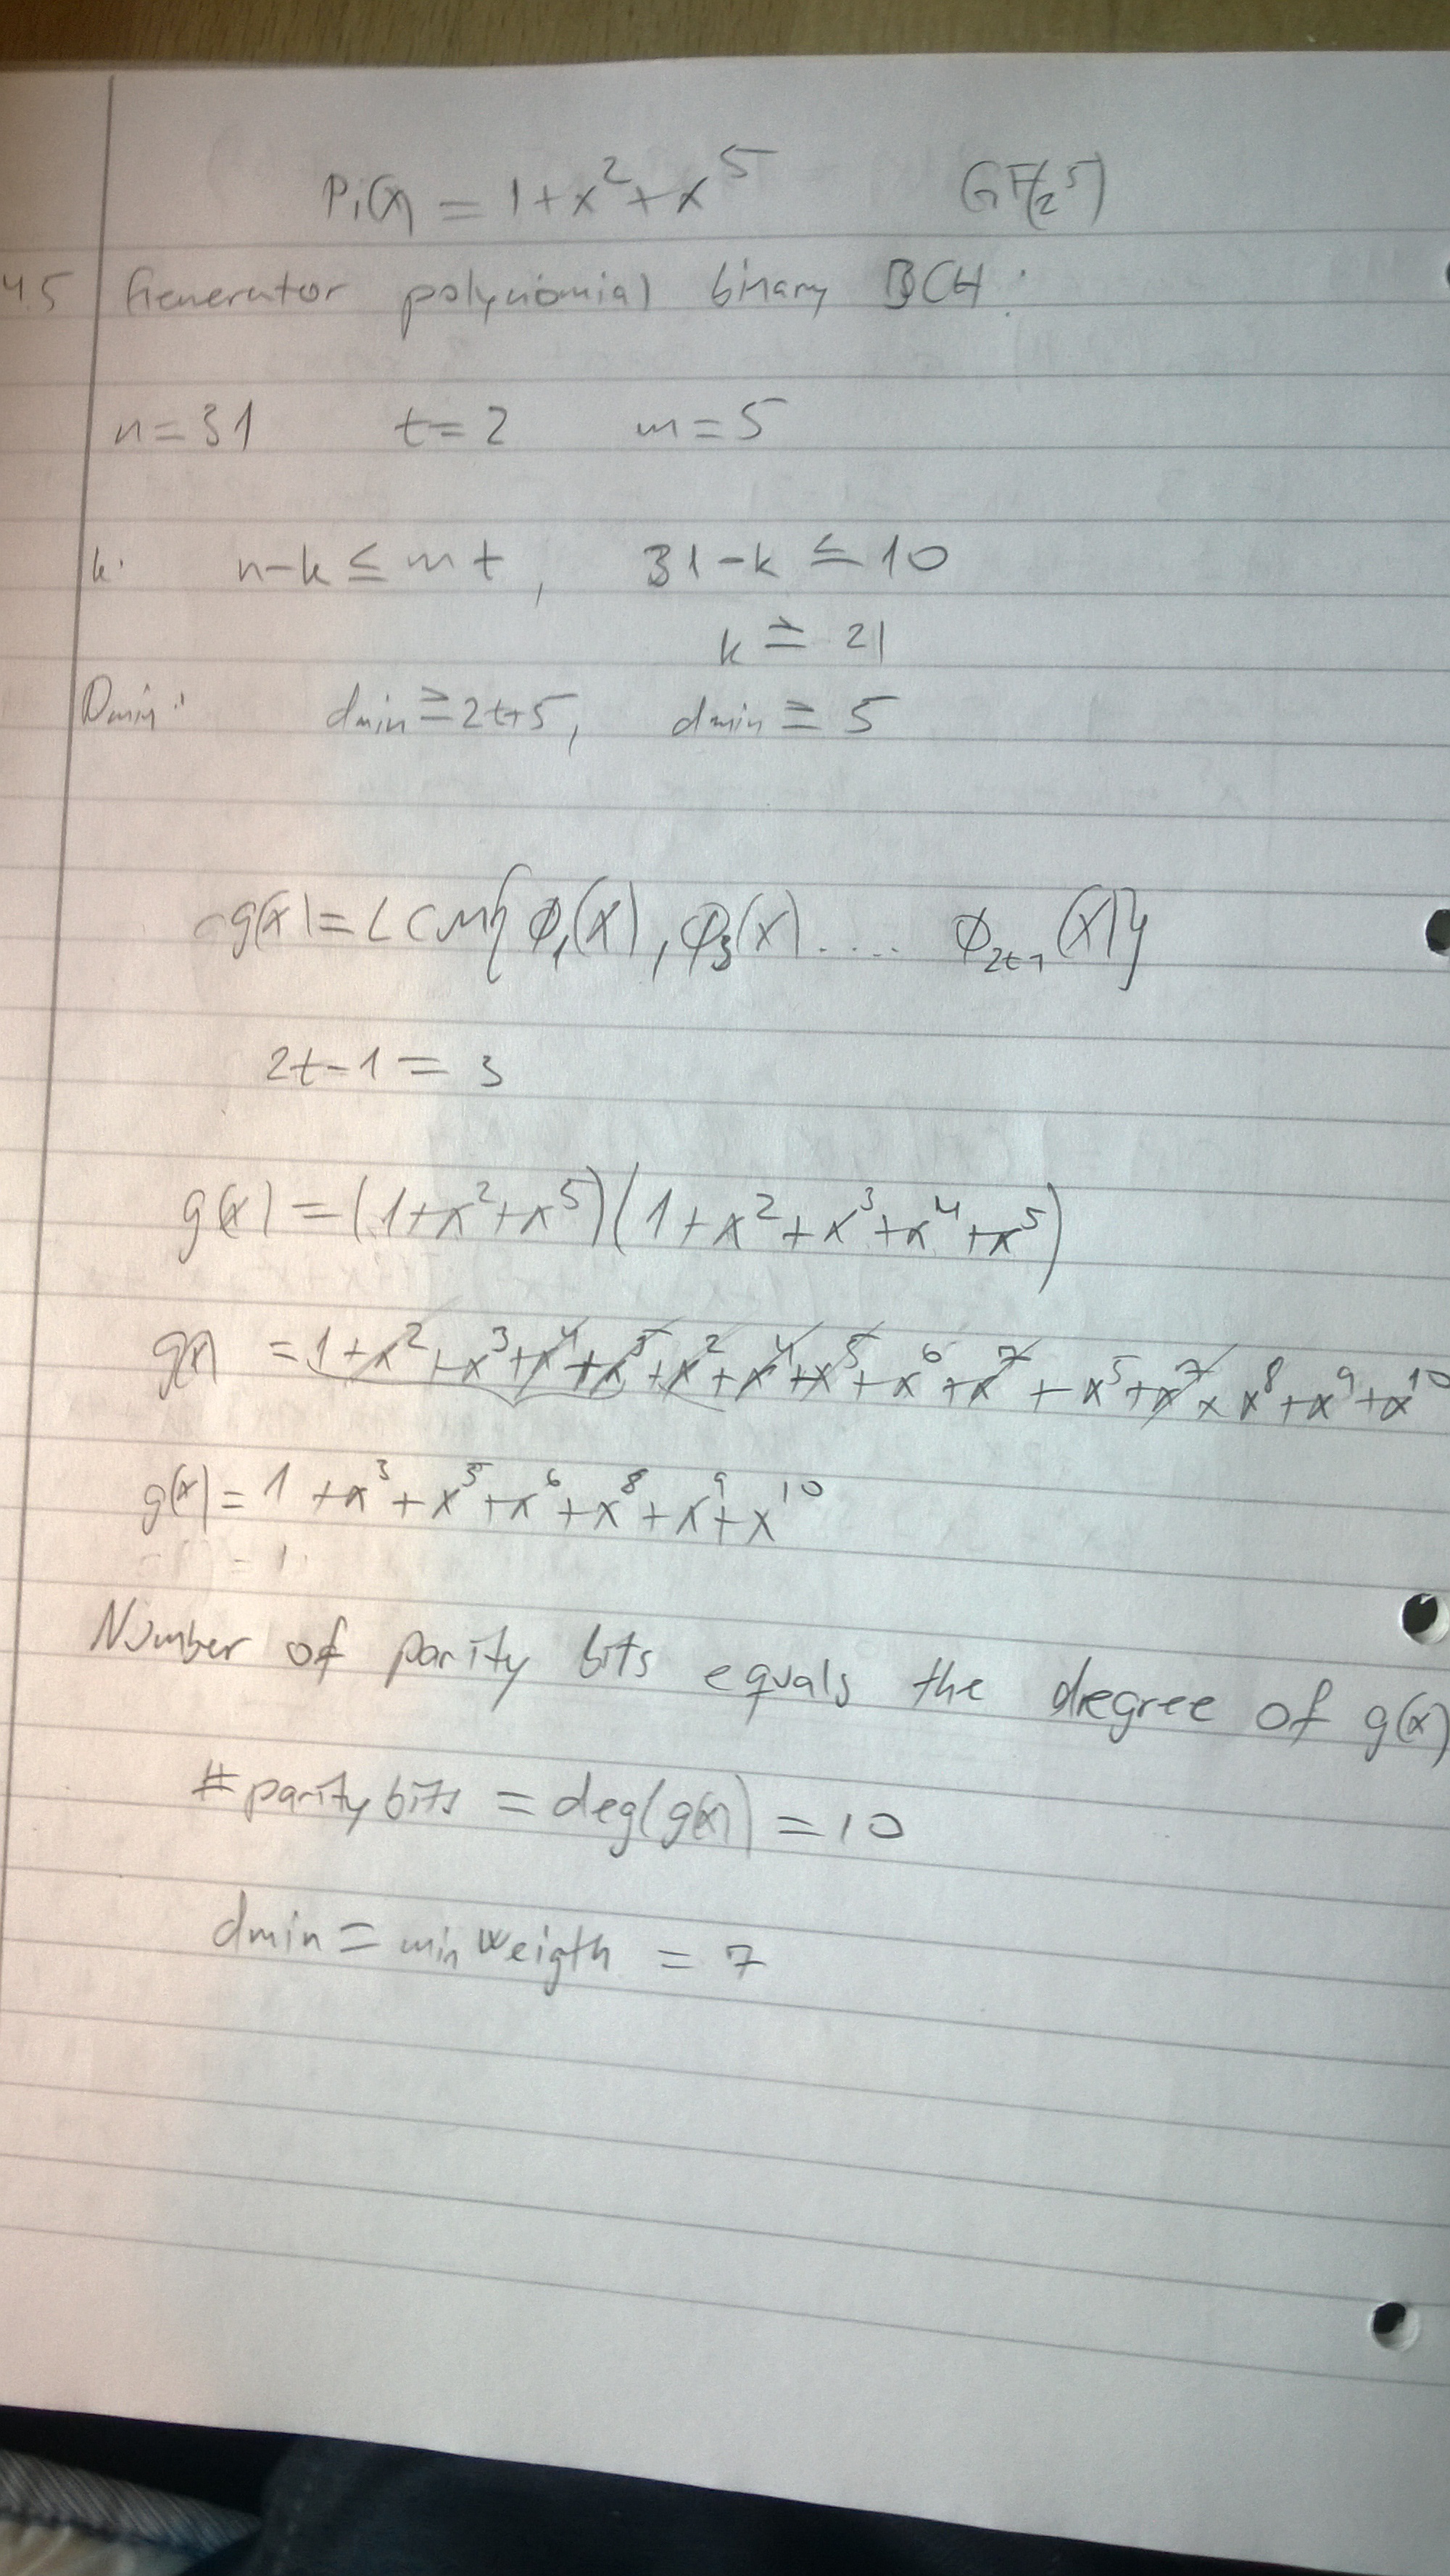 Pi(x) = 1+x²+x⁵ GF(2⁵)
4.5 Generator polynomial binary BCH:
n=31 t=2 m=5
k: n-k ≤ mt, 31-k ≤ 10
k ≥ 21
Dmin: dmin ≥ 2t+5, dmin ≥ 5
g(x) = LCM{ϕ₁(x), ϕ₃(x) ..... ϕ₂ₜ₋₁(x)}
2t-1 = 3
g(x) = (1+x²+x⁵)(1+x²+x³+x⁴+x⁵)
g(x) = 1+x²+x³+x⁴+x⁵+x²+x⁴+x⁵+x⁶+x⁷+x⁵+x⁷+x⁸+x⁹+x¹⁰
g(x) = 1+x³+x⁵+x⁶+x⁸+x⁹+x¹⁰
Number of parity bits equals the degree of g(x)
# parity bits = deg(g(x)) = 10
dmin = min weigth = 7